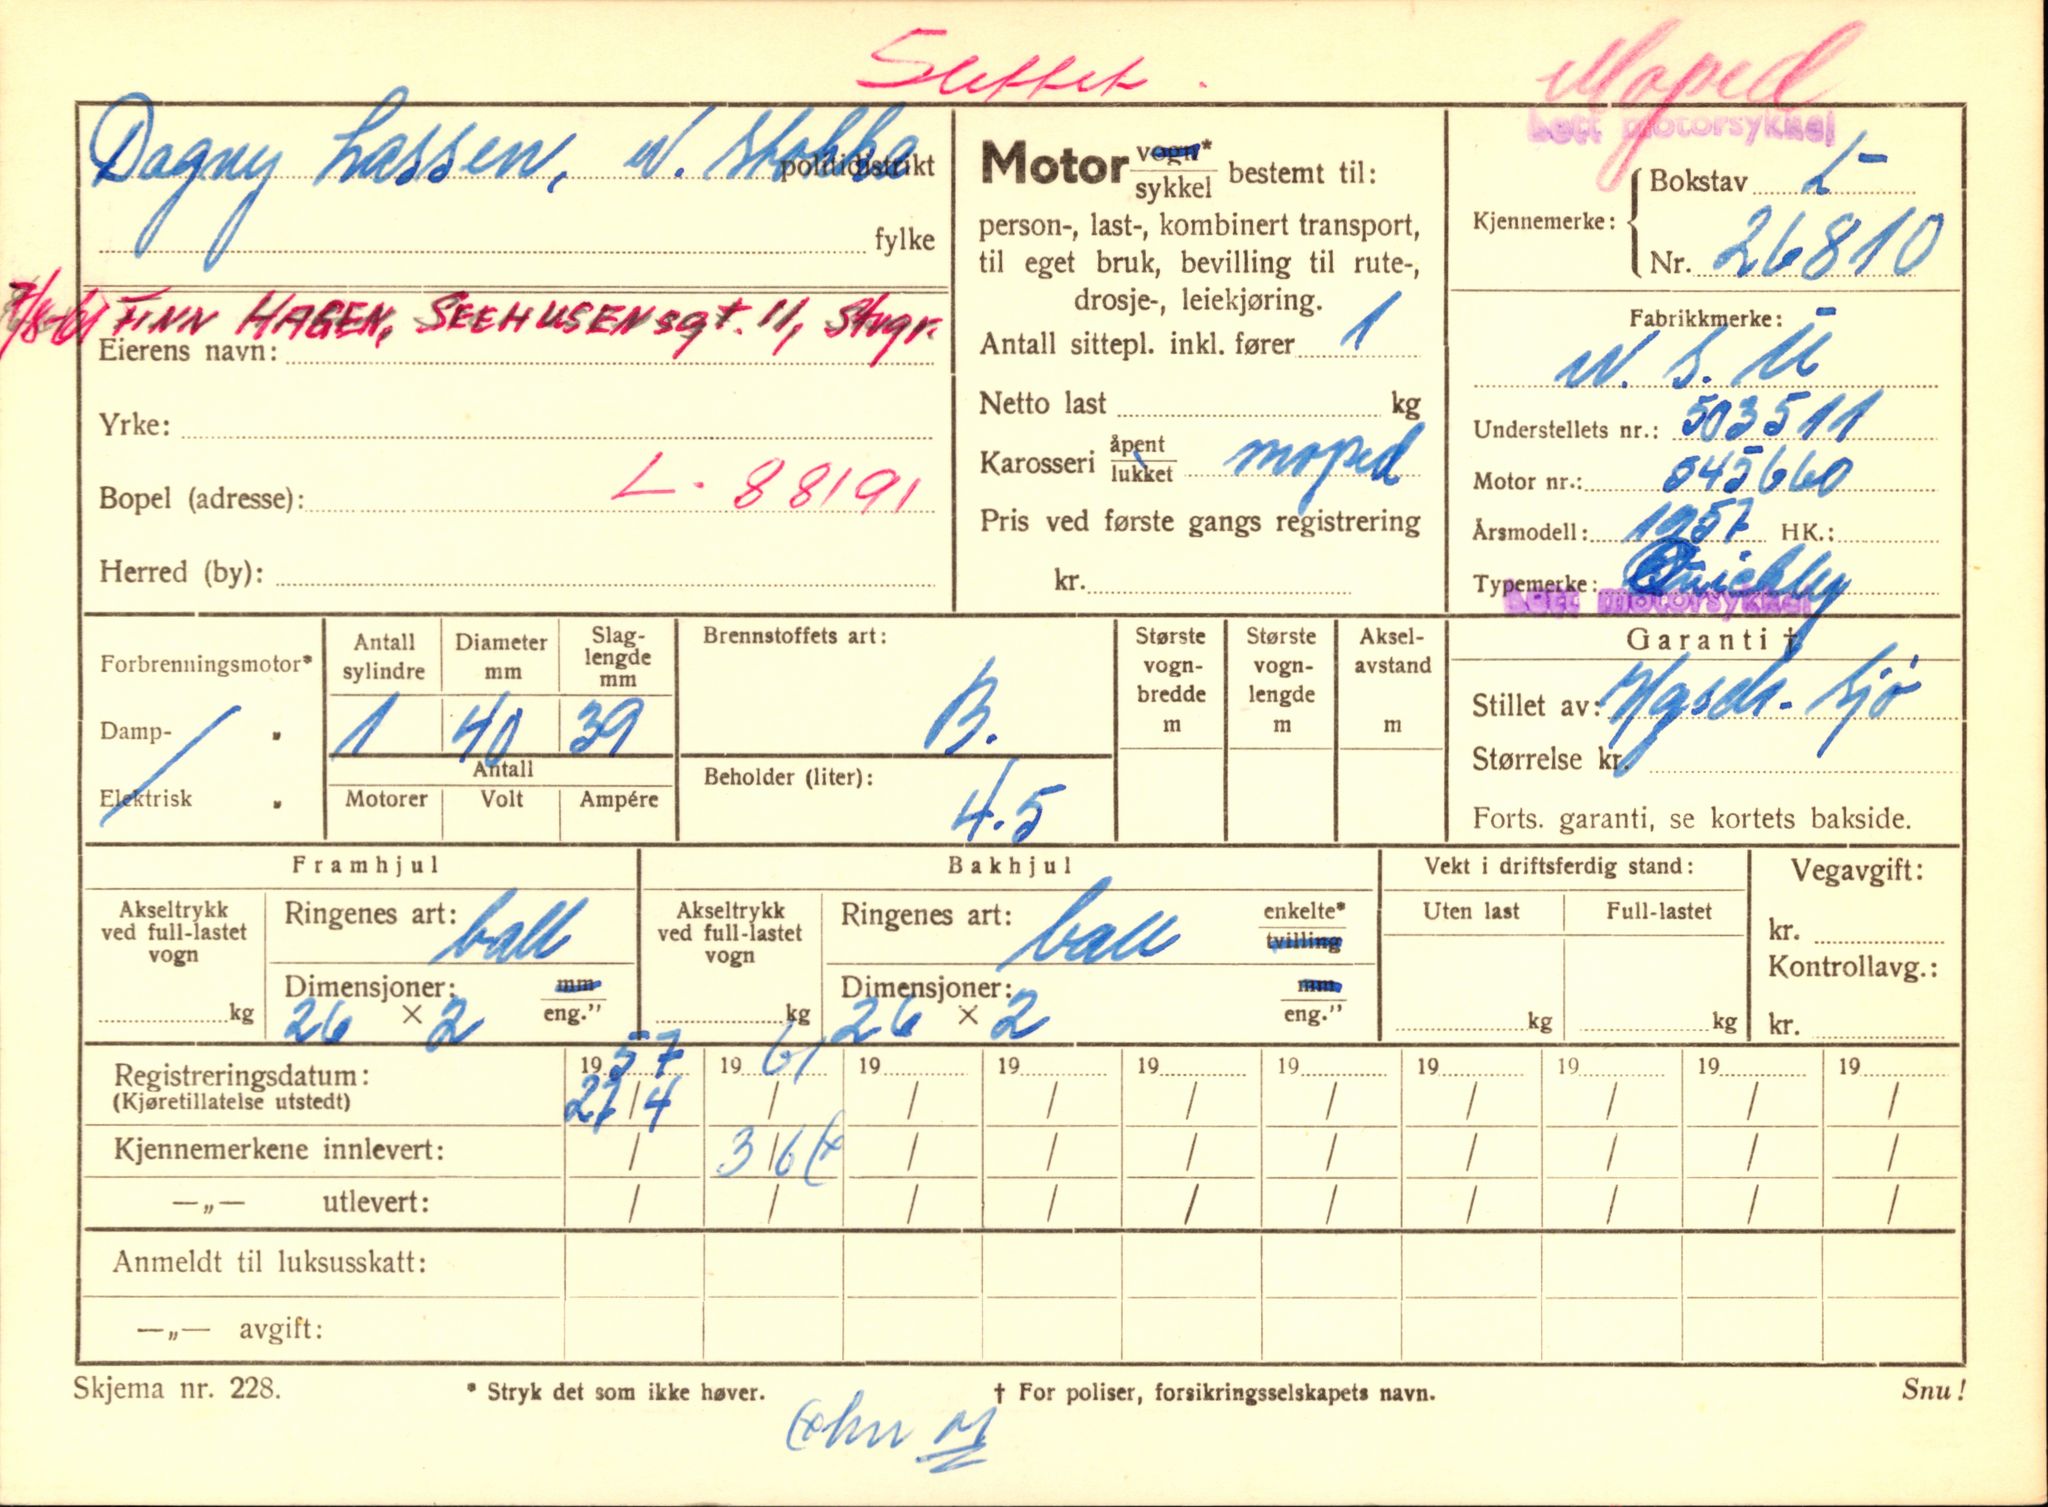 Slettet.
Moped
lett motorsykkel
Dagny Lassen, N. Stokka
politidistrikt
fylke
7/8-61 FINN HAGEN, SEEHUSENsgt. 11, Stvgr.
Eierens navn:
Yrke:
Bopel (adresse): L. 88191
Herred (by):
Motor vogn* sykkel bestemt til:
person-, last-, kombinert transport,
til eget bruk, bevilling til rute-,
drosje-, leiekjøring.
Antall sittepl. inkl. fører 1
Netto last kg
Karosseri åpent lukket moped
Pris ved første gangs registrering
kr.
Kjennemerke: Bokstav L-
Nr. 26810
Fabrikkmerke:
N. S. U
Understellets nr.: 503511
Motor nr.: 545660
Årsmodell: 1957 HK.:
Typemerke: Quickly
lett motorsykkel
Forbrenningsmotor*
Damp- "
Elektrisk "
Antall sylindre Diameter mm Slag-lengde mm
1 40 39
Antall
Motorer Volt Ampére
Brennstoffets art:
B.
Beholder (liter):
4.5
Største vogn-bredde m
Største vogn-lengde m
Aksel-avstand m
Garanti †
Stillet av: Sjø
Størrelse kr.
Forts. garanti, se kortets bakside.
Framhjul
Akseltrykk ved full-lastet vogn
kg
Ringenes art: ball
Dimensjoner: mm eng."
26 × 2
Bakhjul
Akseltrykk ved full-lastet vogn
kg
Ringenes art: ball enkelte* tvilling
Dimensjoner: mm eng."
26 × 2
Vekt i driftsferdig stand:
Uten last Full-lastet
kg kg
Vegavgift:
kr.
Kontrollavg.:
kr.
Registreringsdatum: 1957 1961 19 19 19 19 19 19 19 19
(Kjøretillatelse utstedt) 27/4 / / / / / / / / /
Kjennemerkene innlevert: / 3/6 / / / / / / / /
—„— utlevert: / / / / / / / / / /
Anmeldt til luksusskatt:
—„— avgift:
Skjema nr. 228.
* Stryk det som ikke høver.
† For poliser, forsikringsselskapets navn.
Snu!